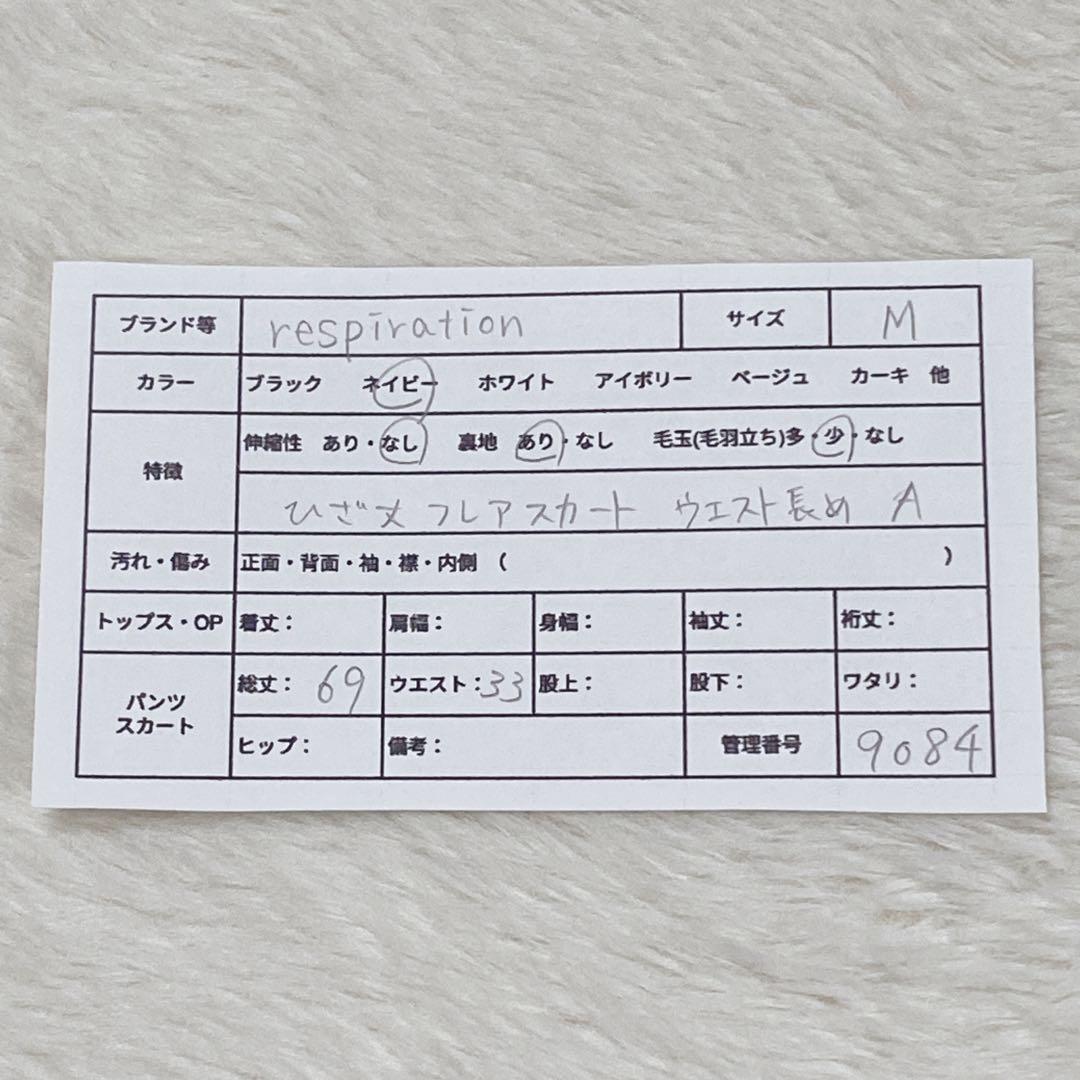 ブランド等 respiration サイズ M
カラー ブラック ネイビー ホワイト アイボリー ベージュ カーキ 他
特徴 伸縮性 あり・なし 裏地 あり・なし 毛玉(毛羽立ち)多・少・なし
ひざ丈 フレアスカート ウエスト長め A
汚れ・傷み 正面・背面・袖・襟・内側 ( )
トップス・OP 着丈: 肩幅: 身幅: 袖丈: 裄丈:
パンツ スカート 総丈: 69 ウエスト:33 股上: 股下: ワタリ:
ヒップ: 備考: 管理番号 9084